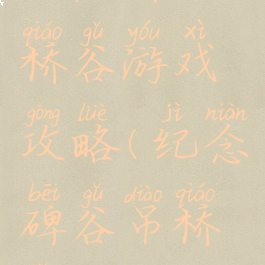 qiáo gǔ yóu xì
桥谷游戏
gōng lüè jì niàn
攻略(纪念
bēi gǔ diào qiáo
碑谷吊桥